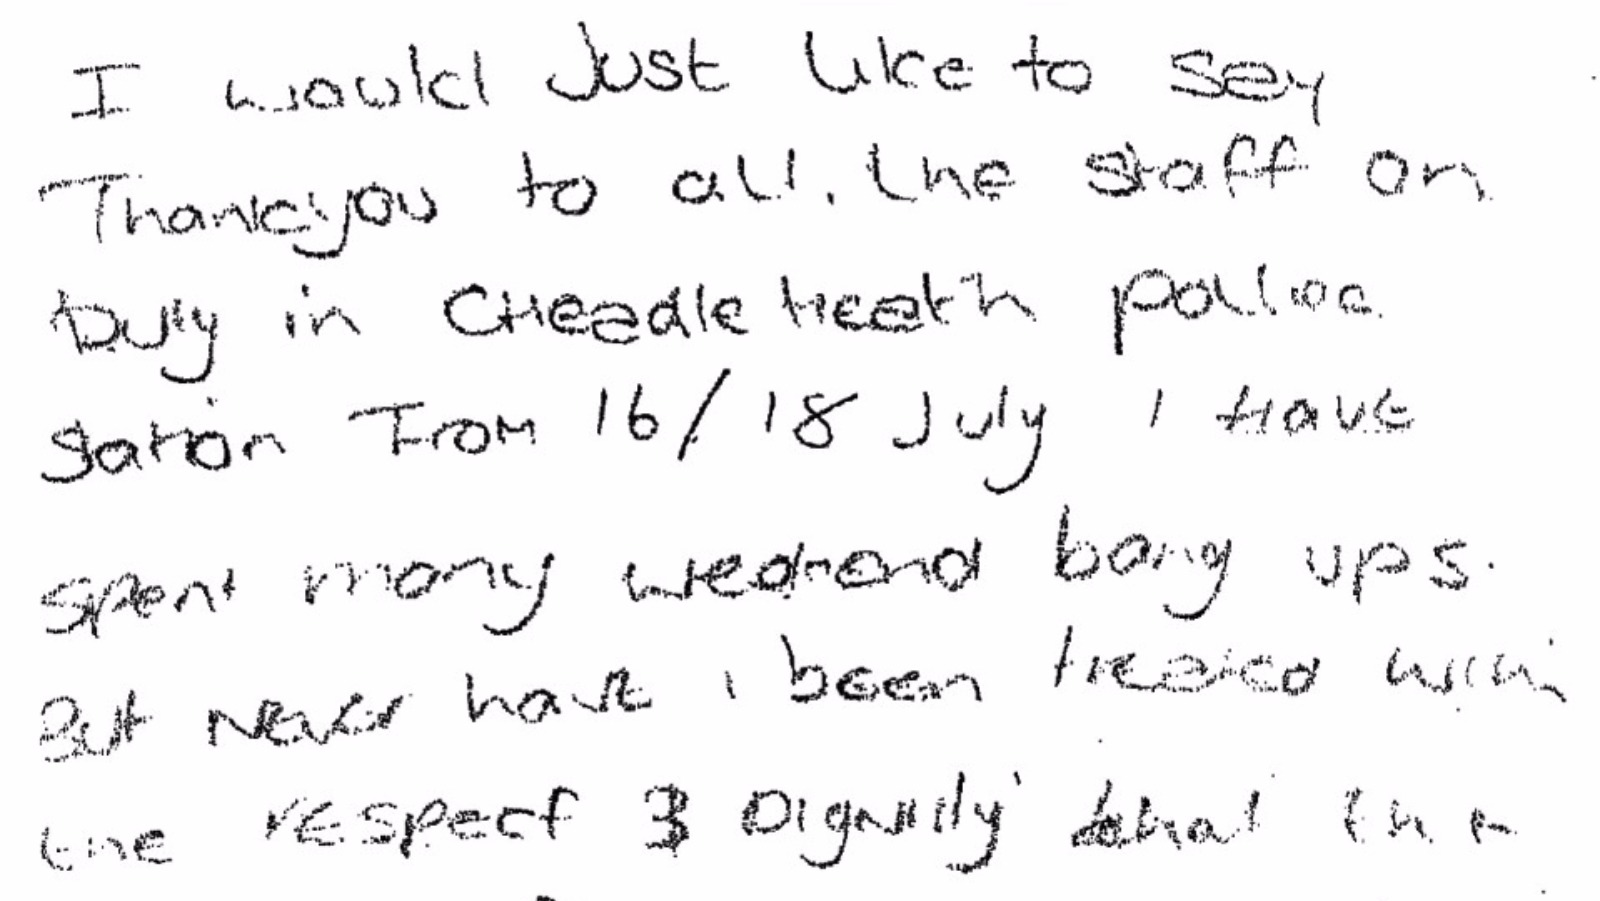 I would Just like to say
Thankyou to all. the staff on
Duty in CHeadle Heath police
station From 16/18 July I Have
spent many weekend bang ups.
But Never have i been treated with
the respect & Dignity that the